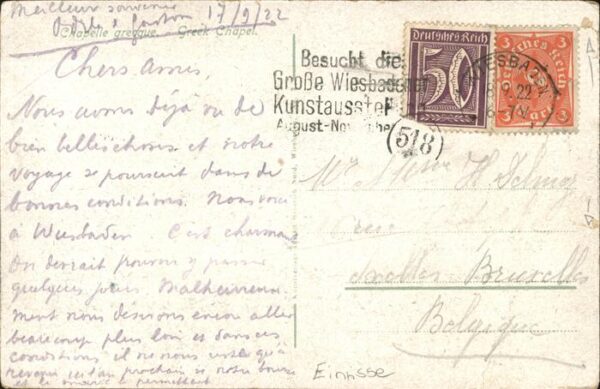 Meilleur souvenir
17/9/22
Chapelle grecque. — Greek Chapel.
Chers amis,
Nous avons déjà vu de
bien belles choses et notre
voyage se poursuit dans de
bonnes conditions. Nous voici
à Wiesbaden. C'est charmant
On devrait pouvoir y passer
quelques jours. Malheureuse
ment nous désirons encore aller
beaucoup plus loin et dans ces
conditions il ne nous reste qu'à
revenir l'an prochain si notre bourse
et le permettent
Besucht die
Große Wiesbadener
Kunstausstel
August-November
Deutsches Reich
50
3
Deutsches Reich
3
Mark
WIESBADEN
9.22
518
H.
rue
Ixelles Bruxelles
Belgique